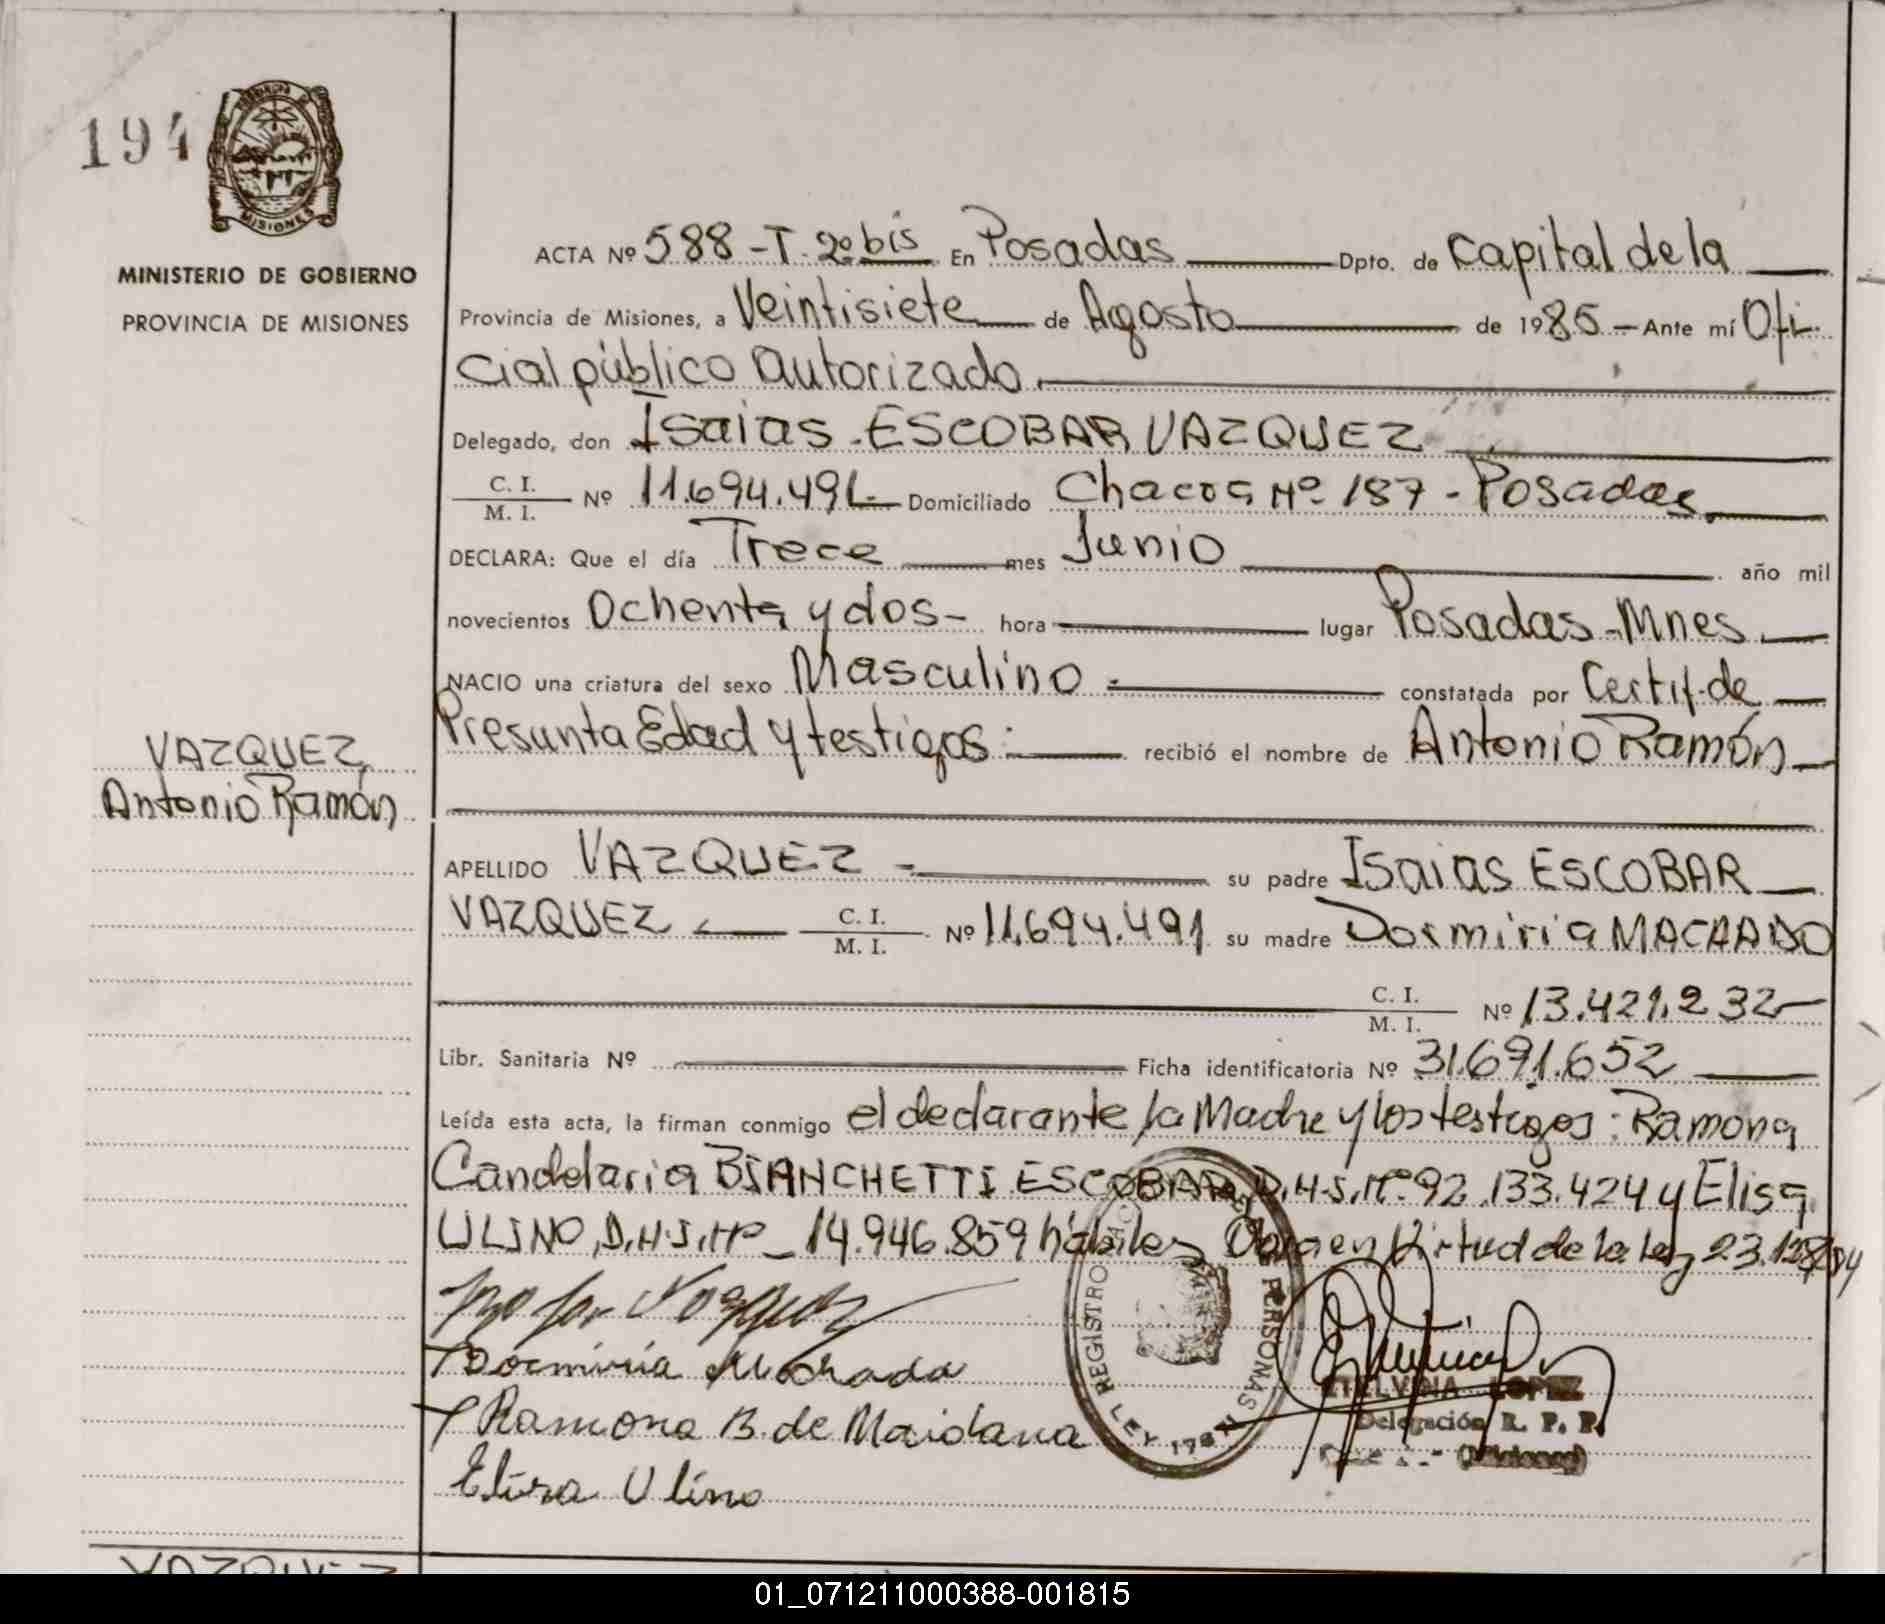 194
PROVINCIA DE
MISIONES
MINISTERIO DE GOBIERNO
PROVINCIA DE MISIONES
VAZQUEZ,
Antonio Ramón
ACTA Nº 588 - T. 2º bis En Posadas Dpto. de Capital de la
Provincia de Misiones, a Veintisiete de Agosto de 1985 - Ante mí Ofi-
cial público autorizado.
Delegado, don Isaias ESCOBAR VAZQUEZ
C. I. / M. I. Nº 11.694.491 Domiciliado Chacra Nº 187 - Posadas.
DECLARA: Que el día Trece mes Junio año mil
novecientos Ochenta y dos - hora lugar Posadas - Mnes
NACIO una criatura del sexo Masculino - constatada por Certif. de
Presunta Edad y testigos: recibió el nombre de Antonio Ramón
APELLIDO VAZQUEZ - su padre Isaias ESCOBAR
VAZQUEZ C. I. / M. I. Nº 11.694.491 su madre Dormiria MACHADO
C. I. / M. I. Nº 13.421.232
Libr. Sanitaria Nº Ficha identificatoria Nº 31.691.652
Leída esta acta, la firman conmigo el declarante la Madre y los testigos: Ramona
Candelaria BIANCHETTI ESCOBAR, D.N.I. Nº 92.133.424 y Elisa
ULINO, D.N.I. Nº 14.946.859 hábiles en Virtud de la Ley 23.128/84
Vazquez
Dormiria Machado
Ramona B. de Maidana
Ulino
REGISTRO PERSONAS
LEY
ETELVINA LOPEZ
Delegación R. P. P.
(Misiones)
VAZQUEZ
01_071211000388-001815